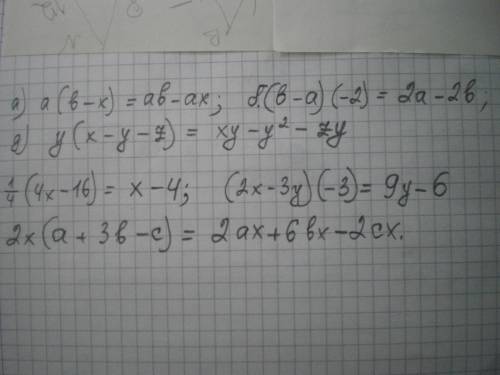 а) a(в-x) = aв-ax; б.(в-a)(-2) = 2a-2в;
д) y(x-y-z) = xy-y²-zy
1/4(4x-16) = x-4; (2x-3y)(-3) = 9y-6
2x(a+3в-c) = 2ax+6вx-2cx.